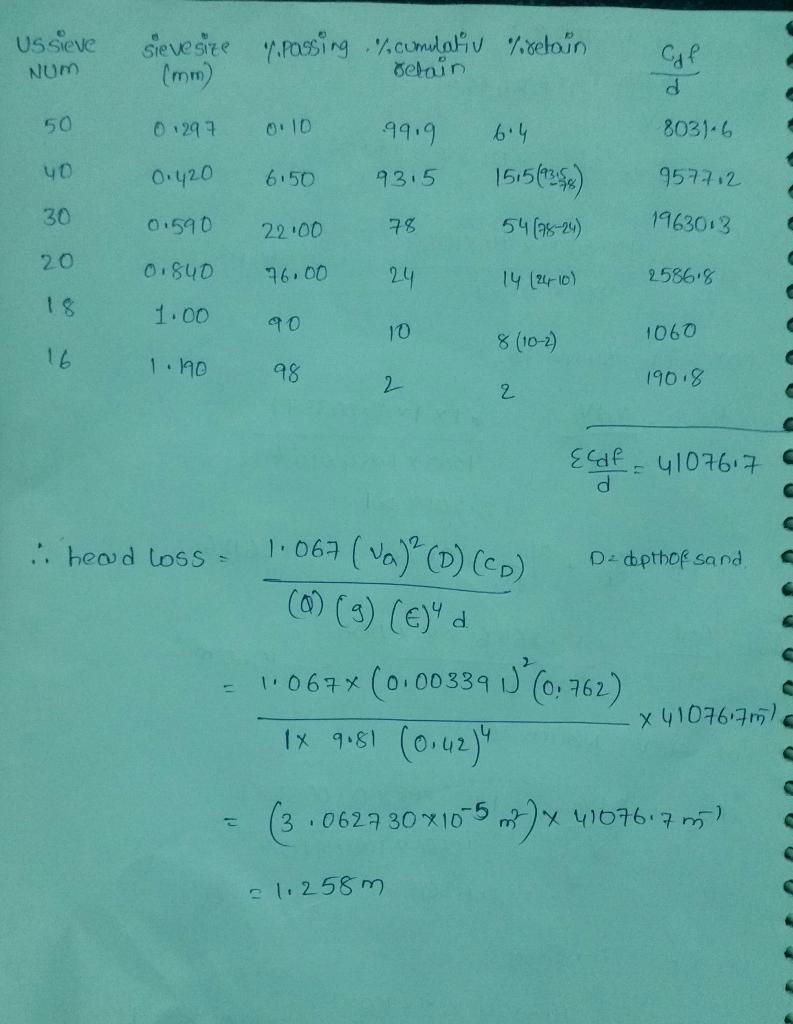 US sieve sieve size %.Passing .%.cumulativ %retain Cdf
NUM (mm) retain d
50 0.297 0.10 99.9 6.4 8031.6
40 0.420 6.50 93.5 15.5(93.5-78) 9577.2
30 0.590 22.00 78 54(78-24) 19630.3
20 0.840 76.00 24 14(24-10) 2586.8
18 1.00 90 10 8(10-2) 1060
16 1.190 98 2 2 190.8
ΣCdf/d = 41076.7
∴ head loss = 1.067 (Va)² (D) (CD) D= dopth of sand
(Q) (g) (E)⁴ d
= 1.067 x (0.003391)² (0.762)
x 41076.7m⁻¹
1x 9.81 (0.42)⁴
= (3.062730 x10⁻⁵ m²) x 41076.7 m⁻¹
= 1.258m